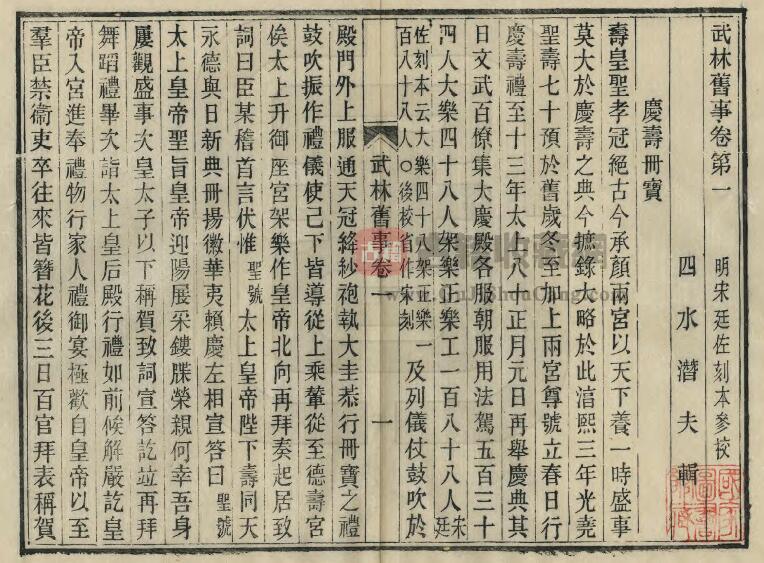 武林舊事卷第一　明宋廷佐刻本參校
四水潛夫輯
慶壽冊寶
壽皇聖孝冠絕古今承顏兩宮以天下養一時盛事
莫大於慶壽之典今摭錄大略於此淳熙三年光堯
聖壽七十預於舊歲冬至加上兩宮尊號立春日行
慶壽禮至十三年太上八十正月元日再舉慶典其
日文武百僚集大慶殿各服朝服用法駕五百三十
四人大樂四十八人架樂正樂工一百八十八人宋廷
佐刻本云大樂四十八架正樂一
百八十八人○後校省作宋刻
及列儀仗鼓吹於
武林舊事卷一　一
殿門外上服通天冠絳紗袍執大圭恭行冊寶之禮
鼓吹振作禮儀使己下皆導從上乘輦從至德壽宮
俟太上升御座宮架樂作皇帝北向再拜奏起居致
詞曰臣某稽首言伏惟聖號太上皇帝陛下壽同天
永德與日新典冊揚徽華夷賴慶左相宣答曰聖號
太上皇帝聖旨皇帝迎陽展采鏤牒榮親何幸吾身
屢觀盛事次皇太子以下稱賀致詞宣答訖竝再拜
舞蹈禮畢次詣太上皇后殿行禮如前候解嚴訖皇
帝入宮進奉禮物行家人禮御宴極歡自皇帝以至
羣臣禁衛吏卒往來皆簪花後三日百官拜表稱賀